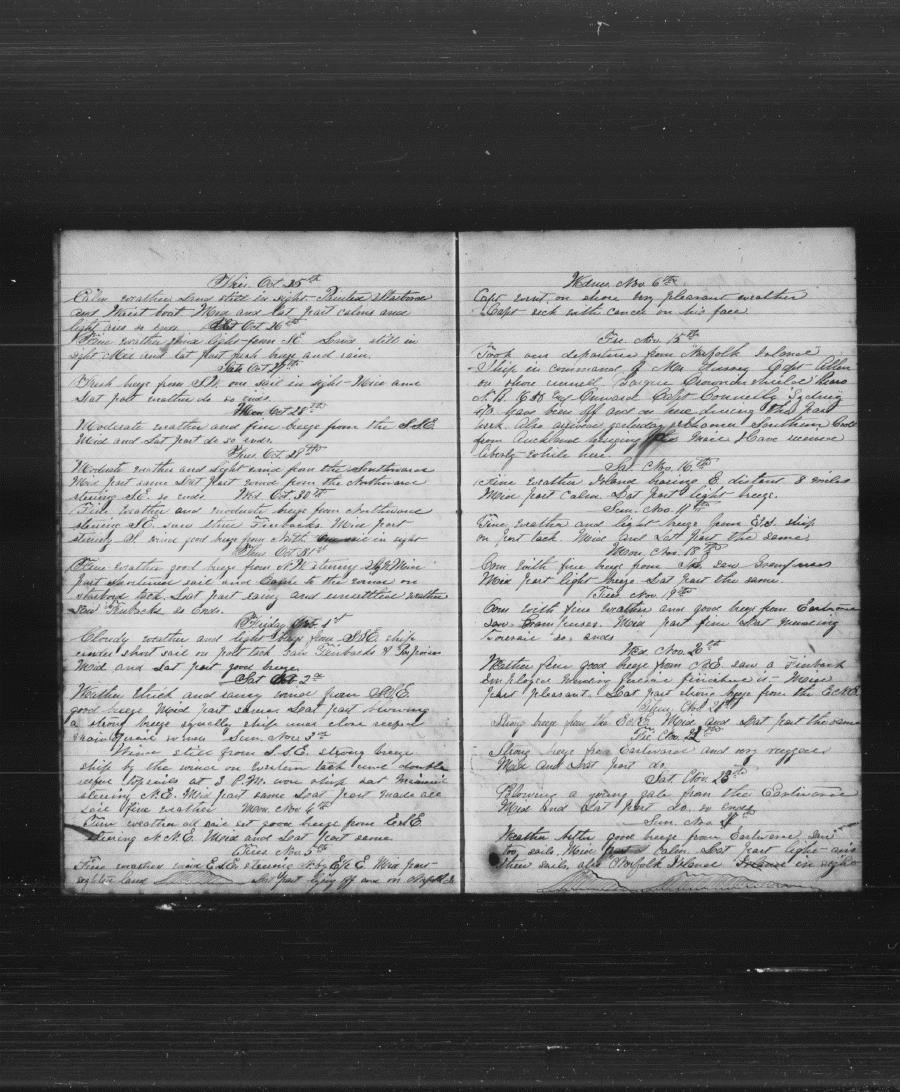 Thurs. Oct 25th
Calm weather Land still in sight - Painted Starboard
and Waist boat Mid and Lat part calms and
light airs so ends Oct 26th
Fine weather wind light from still in
sight Mid and Lat part fresh breeze and rain.
Oct 27th
Fresh breeze from one sail in sight - Mid and
Lat part weather do so ends.
Mon Oct 28th
Moderate weather and fine breeze from the S.S.E.
Mid and Lat part do so ends.
Oct 29th
Moderate weather and light wind from the Southward
Mid part same Lat part wind from the Northward
steering so ends Wed. Oct. 30th
Fine weather and moderate breeze from Northward
steering S.E. saw Finbacks. Mid part
steering S. wind good breeze from North one sail in sight
Thurs Oct 31st
Fine weather good breeze from N.W. steering Mid
part shortened sail and came to the wind on
starboard tack. Lat part rainy and unsettled weather
saw Finbacks so Ends.
Friday 1st
Cloudy weather and light from S.S.E. ship
under short sail on port tack saw Finbacks & Porpoises
Mid and Lat part good breeze.
Sat 2nd
Weather thick and rainy wind from S.S.E.
good breeze Mid part same. Lat part blowing
a strong breeze squally ship under close reefed
Sun. Nov 3rd
Wind still from S.S.E. strong breeze
ship by the wind on Eastern tack under double
reefed topsails at 3 P.M. wore ship
steering N.E. Mid part same Lat part made all
sail fine weather Mon. Nov 4th
Fine weather all sail set good breeze from E.S.E.
steering N.N.E. Mid and Lat part same
Tues. Nov 5th
Fine weather wind E.S.E. steering N by E Mid part
land Lat part lying off and on Norfolk I.
Wednes. Nov. 6th
Capt went on shore very pleasant weather
Capt sick with cancer on his face
Fri. Nov. 15th
Took our departure from Norfolk Island
Ship in command of Mr Capt Allen
on shore unwell
Onward Capt Connelly Sydney
have been off and on here during the past
week. Also arrived yesterday schooner Southern Cross
from Auckland bringing the Mails Have
liberty while here.
Sat. Nov. 16th
Fine weather Island bearing E distant 8 miles
Mid part Calm. Lat part light breeze.
Sun. Nov. 17th
Fine weather and light breeze from ship
on port tack. Mid and Lat part the same
Mon. Nov. 18th
Com with fine breeze from saw Grampuses
Mid part light breeze Lat part the same.
Tues. Nov. 19th
Com with fine weather and good breeze from Eastward
saw Grampuses. Mid part fine Lat
so ends
Wed. Nov. 20th
Weather fine good breeze from saw a Finback
Employed Mid
part pleasant. Lat part strong breeze from the
Thurs. Nov. 21st
Strong breeze from the Mid and Lat part the same
Fri. Nov. 22nd
Strong breeze from Eastward and very rugged
Mid and Lat part do.
Sat Nov. 23rd
Blowing a young gale from the Eastward
Mid and Lat part do. so ends
Sun. Nov.
Weather good breeze from Eastward saw
two sails. Mid part Calm. Lat part light airs
three sails, also Norfolk Island in sight